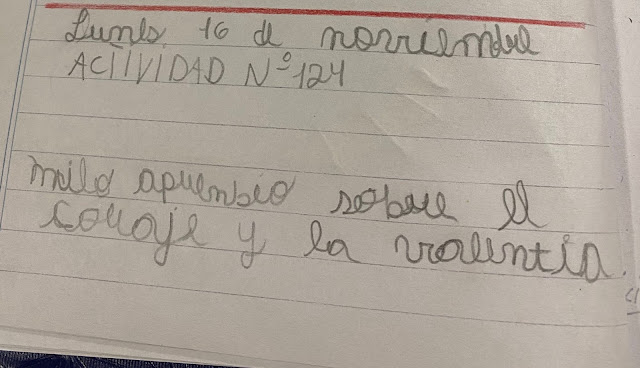 Lunes 16 de noviembre
ACTIVIDAD Nº 124
milo aprendio sobre el
coraje y la valentia.